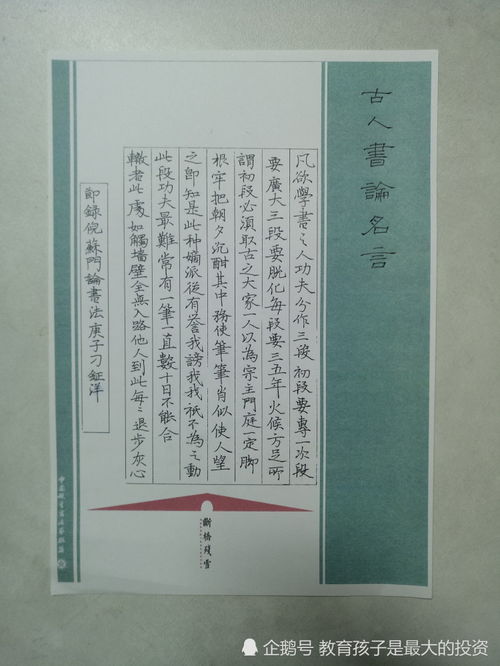 古人書論名言
凡欲學書之人功夫分作三段初段要專一次段
要廣大三段要脫化每段要三五年火候方足所
謂初段必須取古之大家一人以為宗主門庭一定脚
根牢把朝夕沉酣其中務使筆筆當似使人望
之即知是此種嫡派從有譽我謗我我祇不為之動
此段功夫最難常有一筆一直數十日不能合
轍者此處如觸墻壁全無入路他人到此每々退步灰心
節錄倪蘇門論書法庚子刁鉦洋
斷橋殘雪
企鹅号 教育孩子是最大的投资